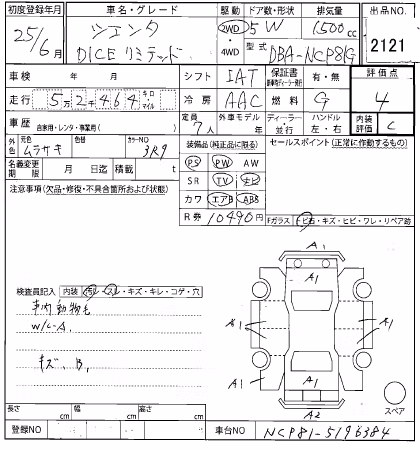 初度登録年月 車名・グレード 駆動 ドア数・形状 排気量 出品NO.
25/6月 シエンタ DICEリミテッド 2WD・4WD 5W 1500cc 2121
型式 DBA-NCP81G
車検 年 月 シフト IAT 保証書 有・無 評価点
走行 5万2千464 キロ マイル 冷房 AAC 燃料 G 4
車歴 自家用・レンタ・事業用( ) 定員 7人 外車モデル 年 ディーラー・並行 ハンドル 左・右 内装評価 C
外色 元色 ムラサキ 色替 カラーNO 3R9
装備品(純正品に限る) セールスポイント(正常に作動するもの)
名義変更期限 月 日迄 積載 t
PS PW AW
注意事項(欠品・修復・不具合箇所および状態)
SR TV ナビ
カワ エアB ABS
R券 10490円 Fガラス トビ石・キズ・ヒビ・ワレ・リペア跡
A1
A1
検査員記入 内装 汚レ・スレ・キズ・キレ・コゲ・穴
車内動物毛
A1
W/C-A.
キズ、B,
A1 A1
A2 スペア
長さ cm 幅 cm 高さ cm
登録NO 車台NO NCP81-5196384